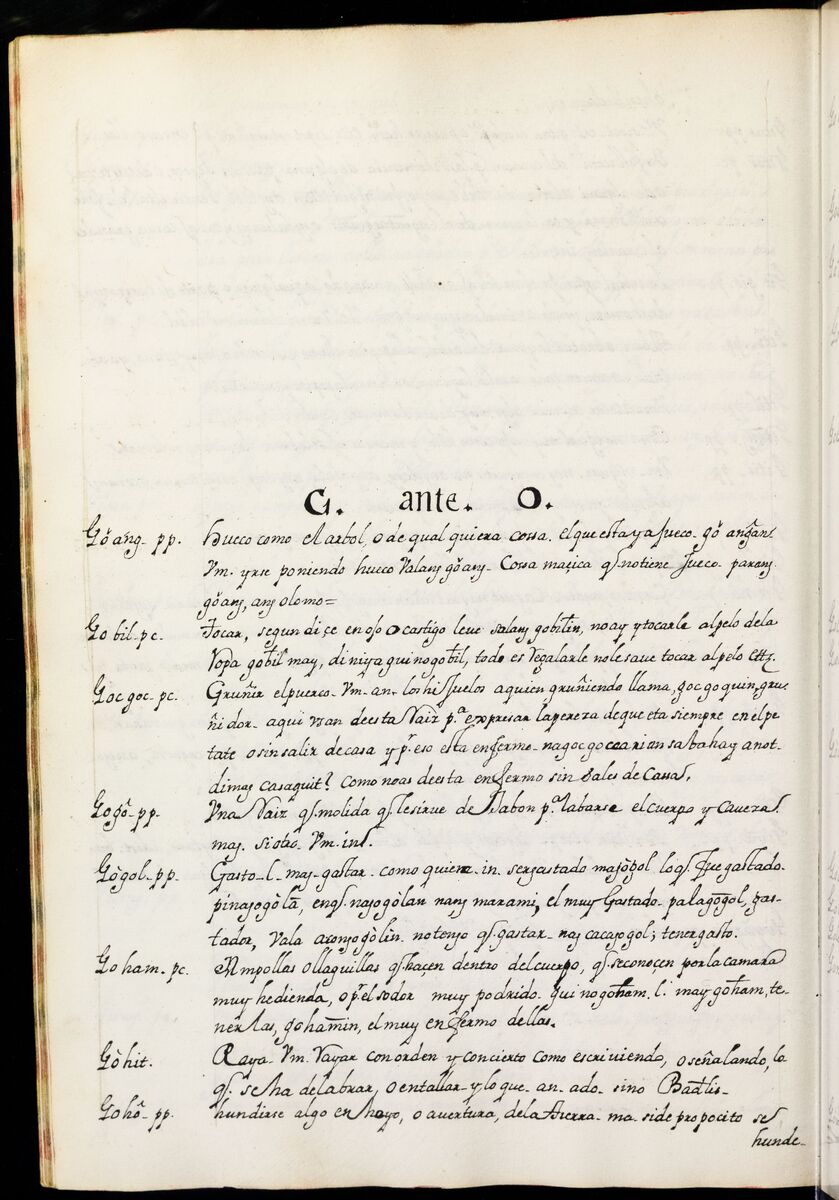 G. ante. O.
Gŏ ang̃- pp. hueco como el arbol, o de qual quiera cossa. el que esta ya hueco- gŏ angan.
Vm. yrse poniendo hueco Valang gŏang- Cossa maçica qͤ. no tiene hueco- parang
gŏang, ang olomo=
Go bil- pc. tocar, segun diçe en o castigo leve Valang gobilin, no ay ytocarle al pelo de la
Ropa gobil may, di niya guinogobil, todo es Regalarle no le save tocar al pelo ettz.
Goc goc- pc. Gruñir el puerco- Vm- an. los hijuelos a quien gruñiendo llama, goc goquin, gru-
ñidor- aqui Vsan de esta Raiz pᵃ expresar la pereza de que eta siempre en el pe-
tate o sin salir de casa y pʳ. eso esta enfermo- nagoc gocca
dimay casaquit? Como no as de esta enfermo sin Sales de Cassa.
Gogŏ- pp. Vna Raiz qͤ. molida qͤ. le sirve de Jabon pᵃ labarse el cuerpo y Caveza.
mag. si otro. Vm. ins.
Gògol- pp. Gasto- l- mag- gastar. como quiera- in. ser gastado- lo qͤ. fue gastado-
pinagogòlã, en qͤ. nagogòlan nang marami, el muy Gastado- palagògol, gas-
tador, Vala acong gogòlin- no tengo qͤ. gastar- nag cacagogol; tener gasto.
Go ham- pc. Ampollas o llaguillas qͤ. haçen dentro del cuerpo, qͤ. se conoçen por la camara
muy hedienda, o pʳ. el sodor muy podrido- guinogoham. l. may goham, te-
nerlas, gohamin, el muy enfermo dellas.
Gòhit. Raya- Vm. Rayar con orden y concierto como escriviendo, o señalando, lo
qͤ. se ha de labrar, o entallar- y lo que- an- ado- sino Badlis-
Gohŏ- pp. hundirse algo en hoyo, o avertura, de la tierra- ma- si de propocito se
hunde-